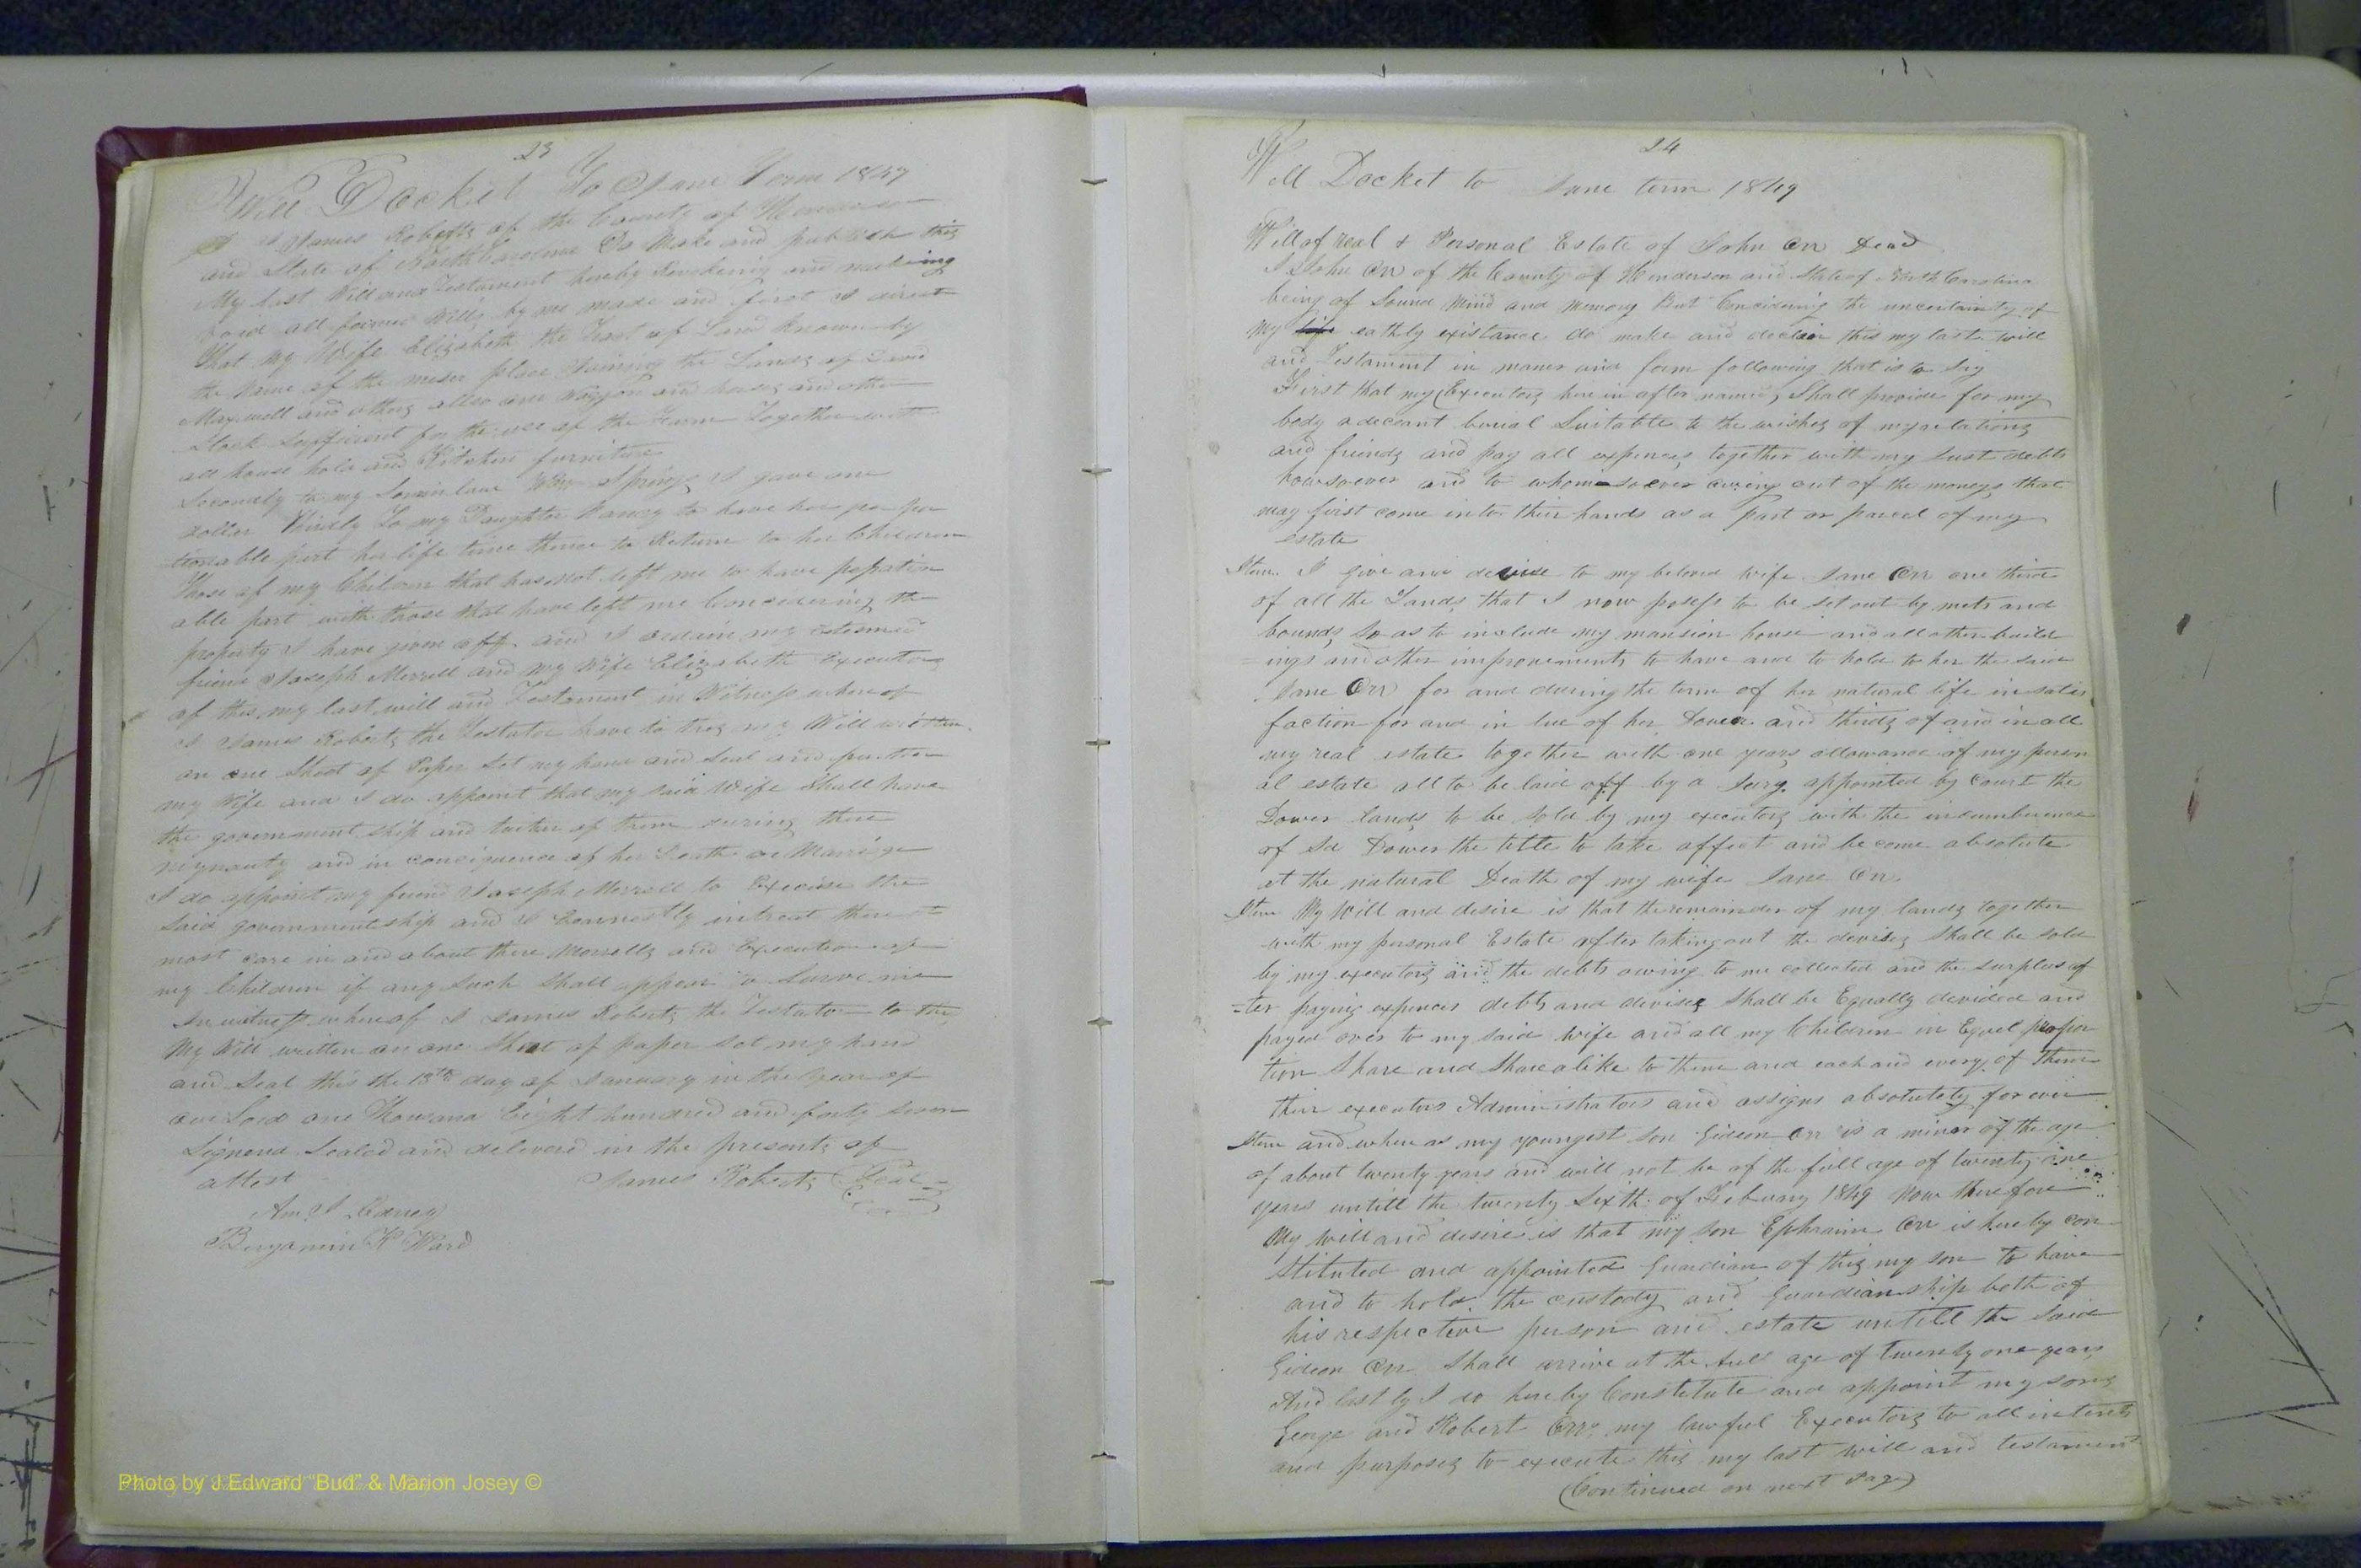 23
Will Docket To June Term 1847
I James Roberts of the County of Henderson
and State of North Carolina Do Make and publish this
My last Will and Testament hereby Revokeing and makeing
void all former Wills by me made and first I direct
that my Wife Elizabeth the Tract of Land known by
the name of the place Joining the Lands of David
Maxwell and others allso one Waggon and horses and other
Stock Sufficient for the use of the Farm Together with
all house hold and Kitchen furniture
Secondly to my Soninlaw Wm Springs I gave one
doller Thirdly To my Daughter Nancy to have her propor
tionable part her life time thence to Return to her Children
Those of my Children that has not left me to have popration
able part with those that have left me Considering the
property I have given off and I ordain my esteemed
friend Joseph Merrell and my Wife Elizabeth Executors
of this my last will and Testament in Witness whereof
I James Roberts the Testator have to this my Will written
on one Sheet of Paper Set my hand and Seal and
my Wife and I do appoint that my said Wife Shall have
the government ship and of them during there
and in conciquence of her Death or Marrige
I do appoint my friend Joseph Merrell to Execise the
Said governmentship and I Earnestly intreat there
most care in and about there Morrells and Execution of
my Children if any Such Shall appear to Surve me
In witness whereof I James Roberts the Testator to this
My Will written on one Sheet of paper Set my hand
and Seal this the 13th day of January in the year of
our Lord one Thousand Eight hundred and forty Seven
Signend Sealed and delivered in the presents of
attest James Roberts (Seal)
Benjamin K Ward
24
Will Docket to June term 1849
Will of Real & Personal Estate of John Orr Dead
I John Orr of the County of Henderson and State of North Carolina
being of Sound Mind and memory But Concidering the uncertainty of
my life eathly existance do make and declair this my last will
and Testament in maner and form following that is to Say
First that my Executors here in after named, Shall provide for my
body a deceant burial Suitable to the wishes of my relations
and friends and pay all expences together with my Just debts
howsoever and to whomsoever owing out of the moneys that
may first come into their hands as a part or parcel of my
estate
Item I give and devise to my beloved wife Jane Orr one third
of all the Lands that I now posess to be set out by mets and
bounds So as to include my mansion house and all other build
=ings and other improvements to have and to hold to her the said
Jane Orr for and during the term of her natural life in satis
faction for and in lue of her Dower and thirds of and in all
my real estate together with one years allowance of my person
al estate all to be laid off by a Jury appointed by Court the
Dower lands to be Sold by my executors with the incumberence
of Sd Dower the title to take affect and become absolute
at the natural Death of my wife Jane Orr
Item My Will and desire is that the remainder of my lands together
with my personal Estate after taking out the devises Shall be Sold
by my executors and the debts owing to me collected and the Surplus af
=ter paying expences debts and devises Shall be Equally devided and
payed over to my said wife and all my Children in Equel propor
tion Share and Share alike to them and each and every of them
their executors Administrators and assigns absolutely for ever
Item and where as my youngest son Gideon Orr is a minor of the age
of about twenty years and will not be of the full age of twenty one
years untill the twenty Sixth of February 1849 Now therefore
My will and desire is that my son Ephraim Orr is here by con
stituted and appointed Guardian of this my son to have
and to hold the custody and Guardianship both of
his respective person and estate untill the Said
Gideon Orr Shall arrive at the full age of twenty one years
And lastly I do here by Constitute and appoint my sons
George and Robert Orr my lawful Executors to all intents
and purposes to execute this my last will and testament
(Continued on next Page)
Photo by J Edward "Bud" & Marion Josey ©